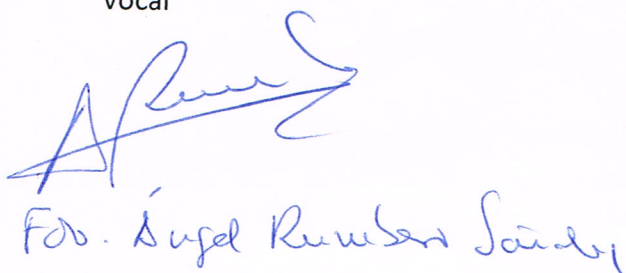 Vocal
Fdo. Ángel Rumbero Sánchez